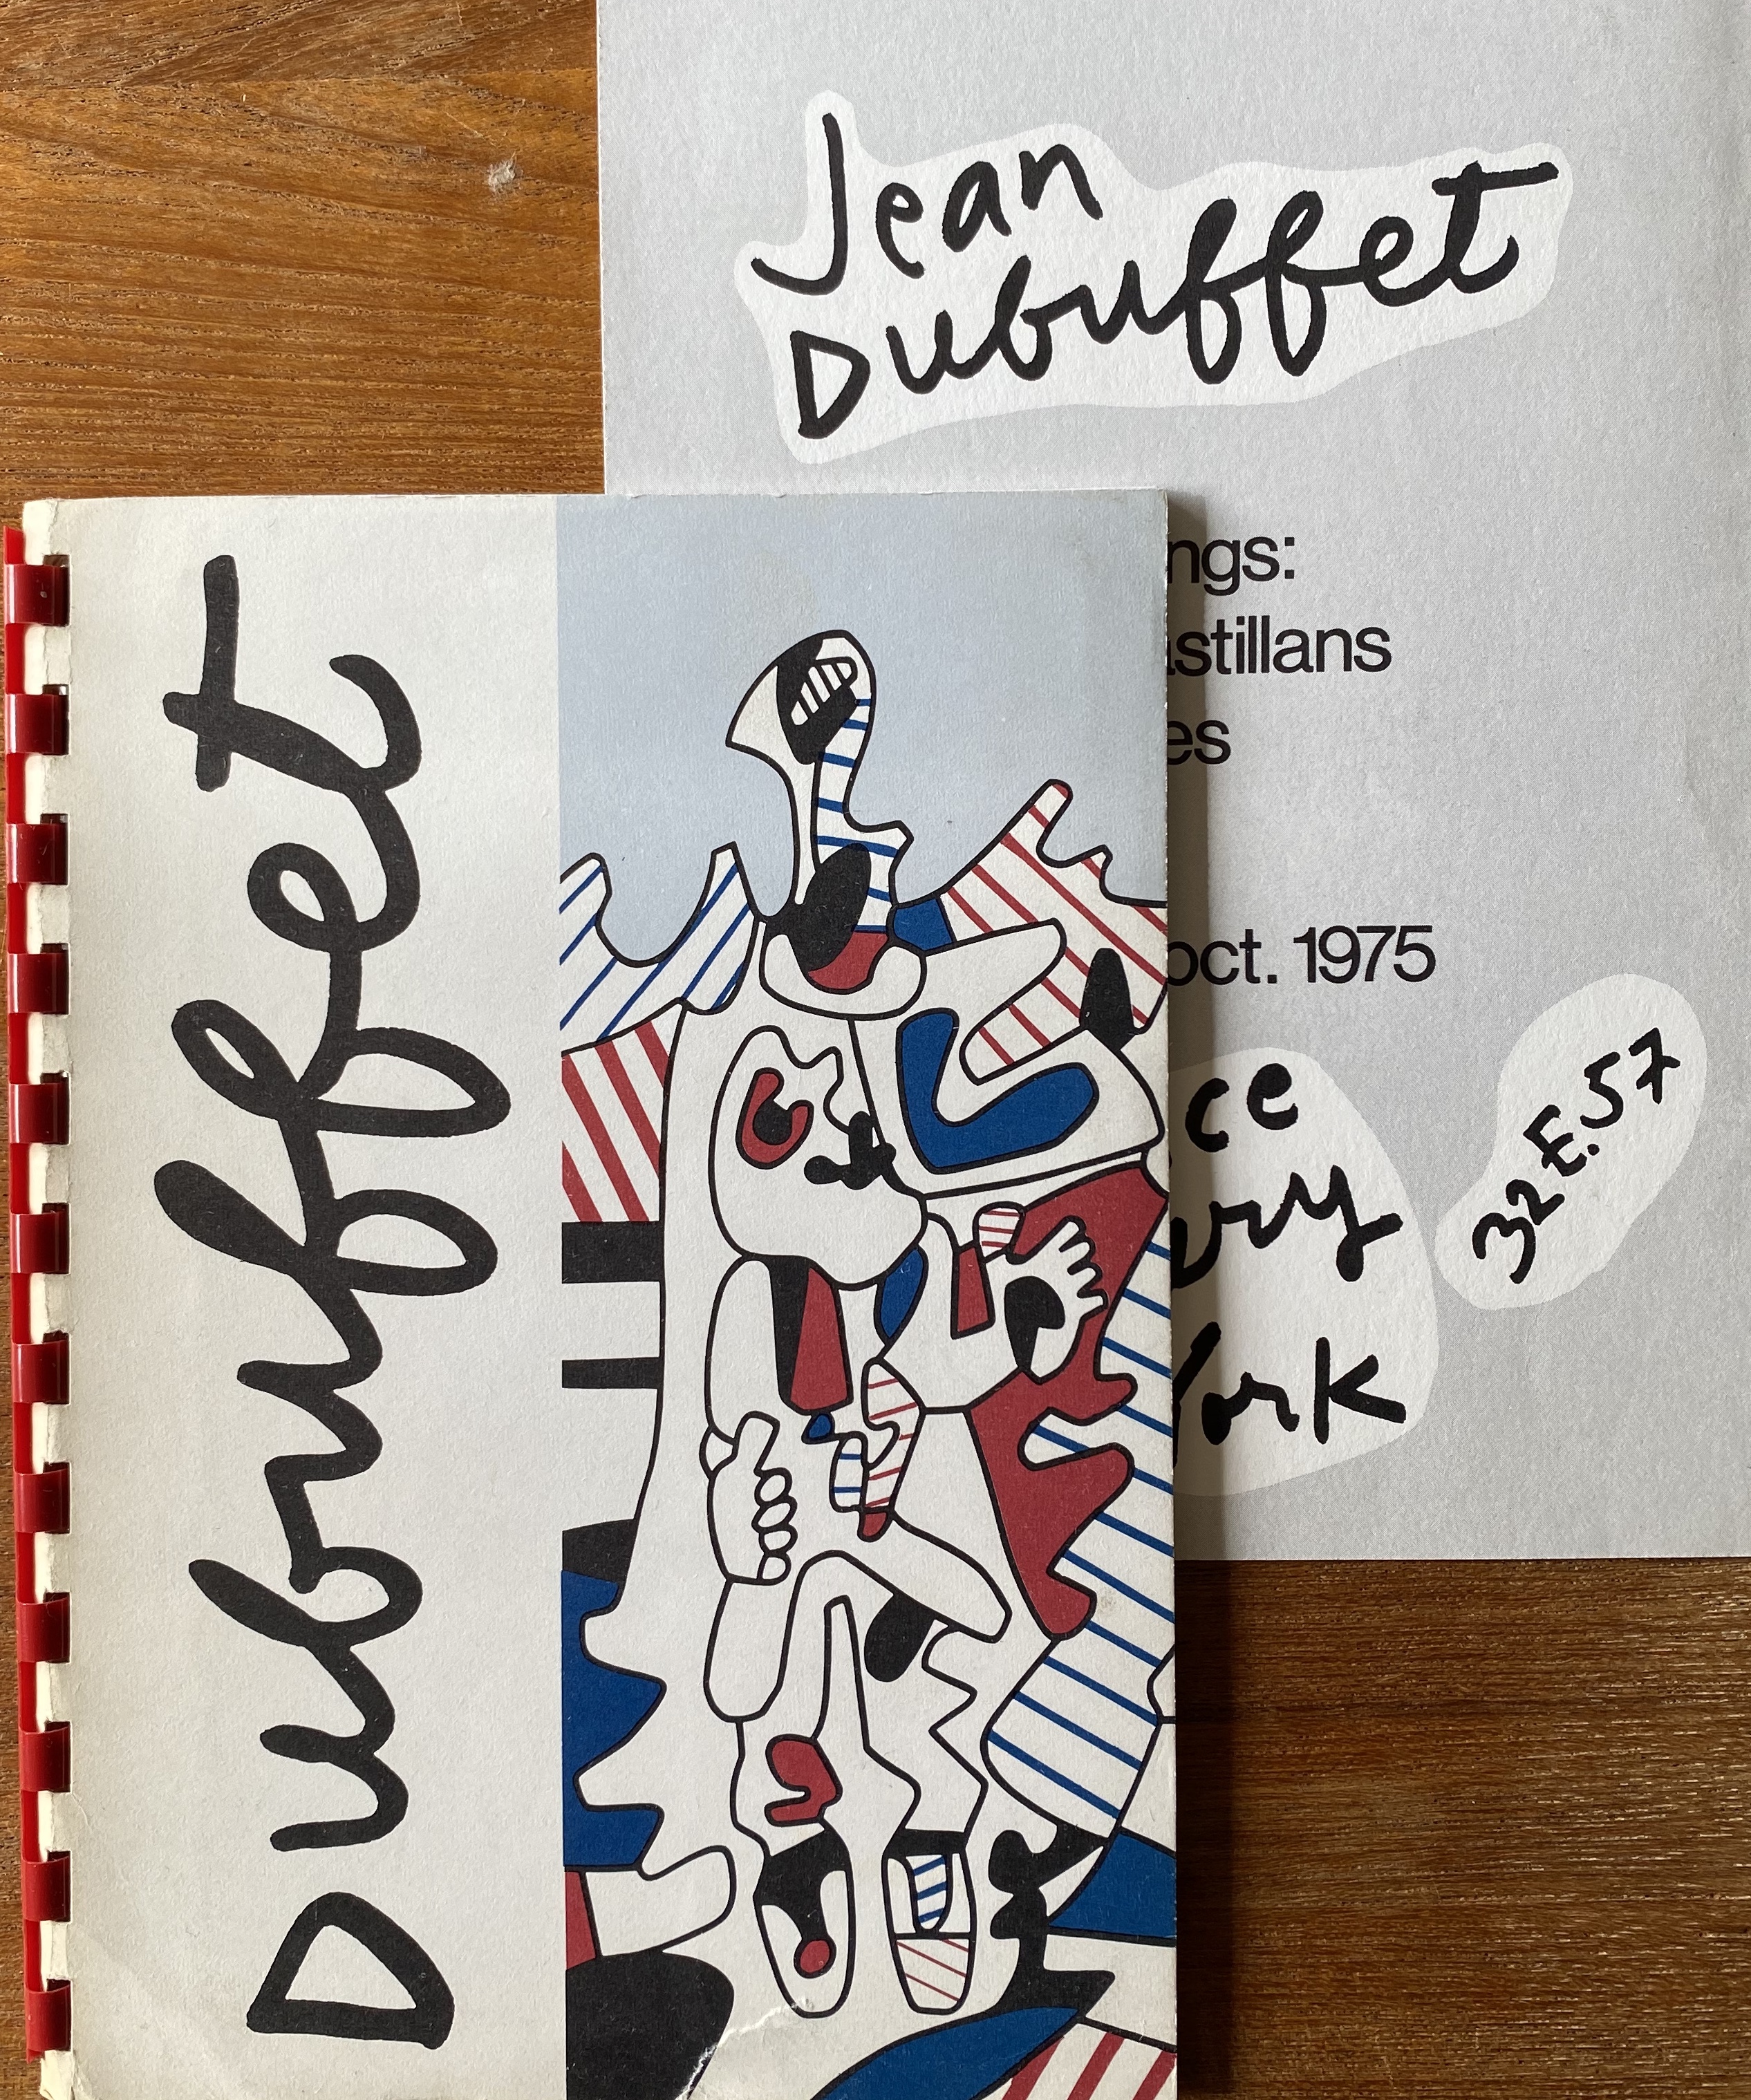 Jean
Dubuffet
ngs:
astillans
es
oct. 1975
ce
ery
York
32 E. 57
Dubuffet